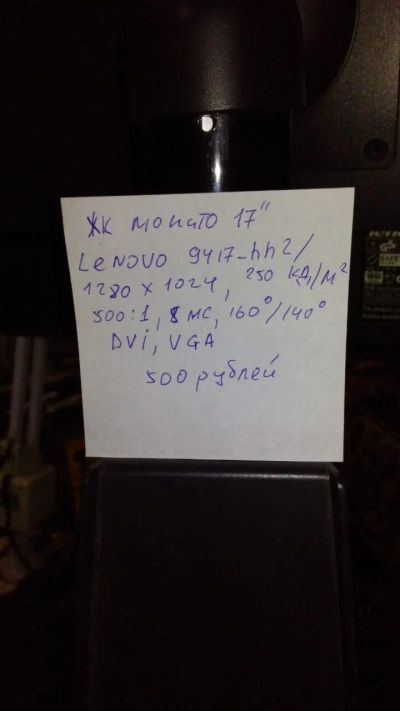 ЖК монито 17"
LeNOVO 9417-hh2/
1280 x 1024, 250 кд/м²
500:1, 8 мс, 160°/140°
DVi, VGA
500 рублей